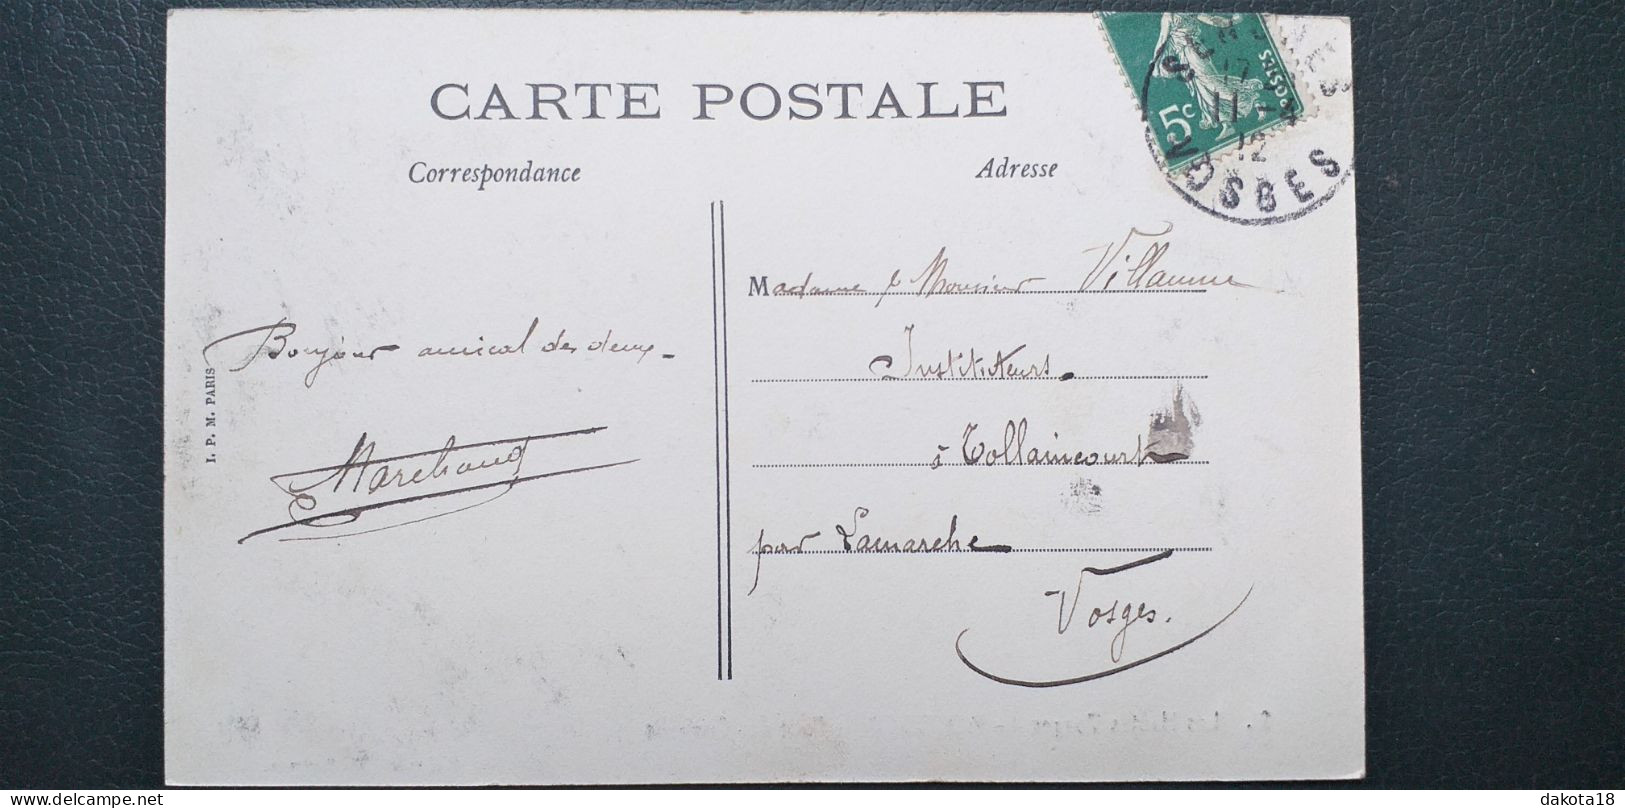 CARTE POSTALE
Correspondance
Adresse
POSTES
5c
17
11
12
VOSGES
Madame & Monsieur Villaume
Instituteurs
à Tollaincourt
par Lamarche
Vosges.
Bonjour amical des deux
Marchand
I. P. M. PARIS
delcampe.net
dakota18